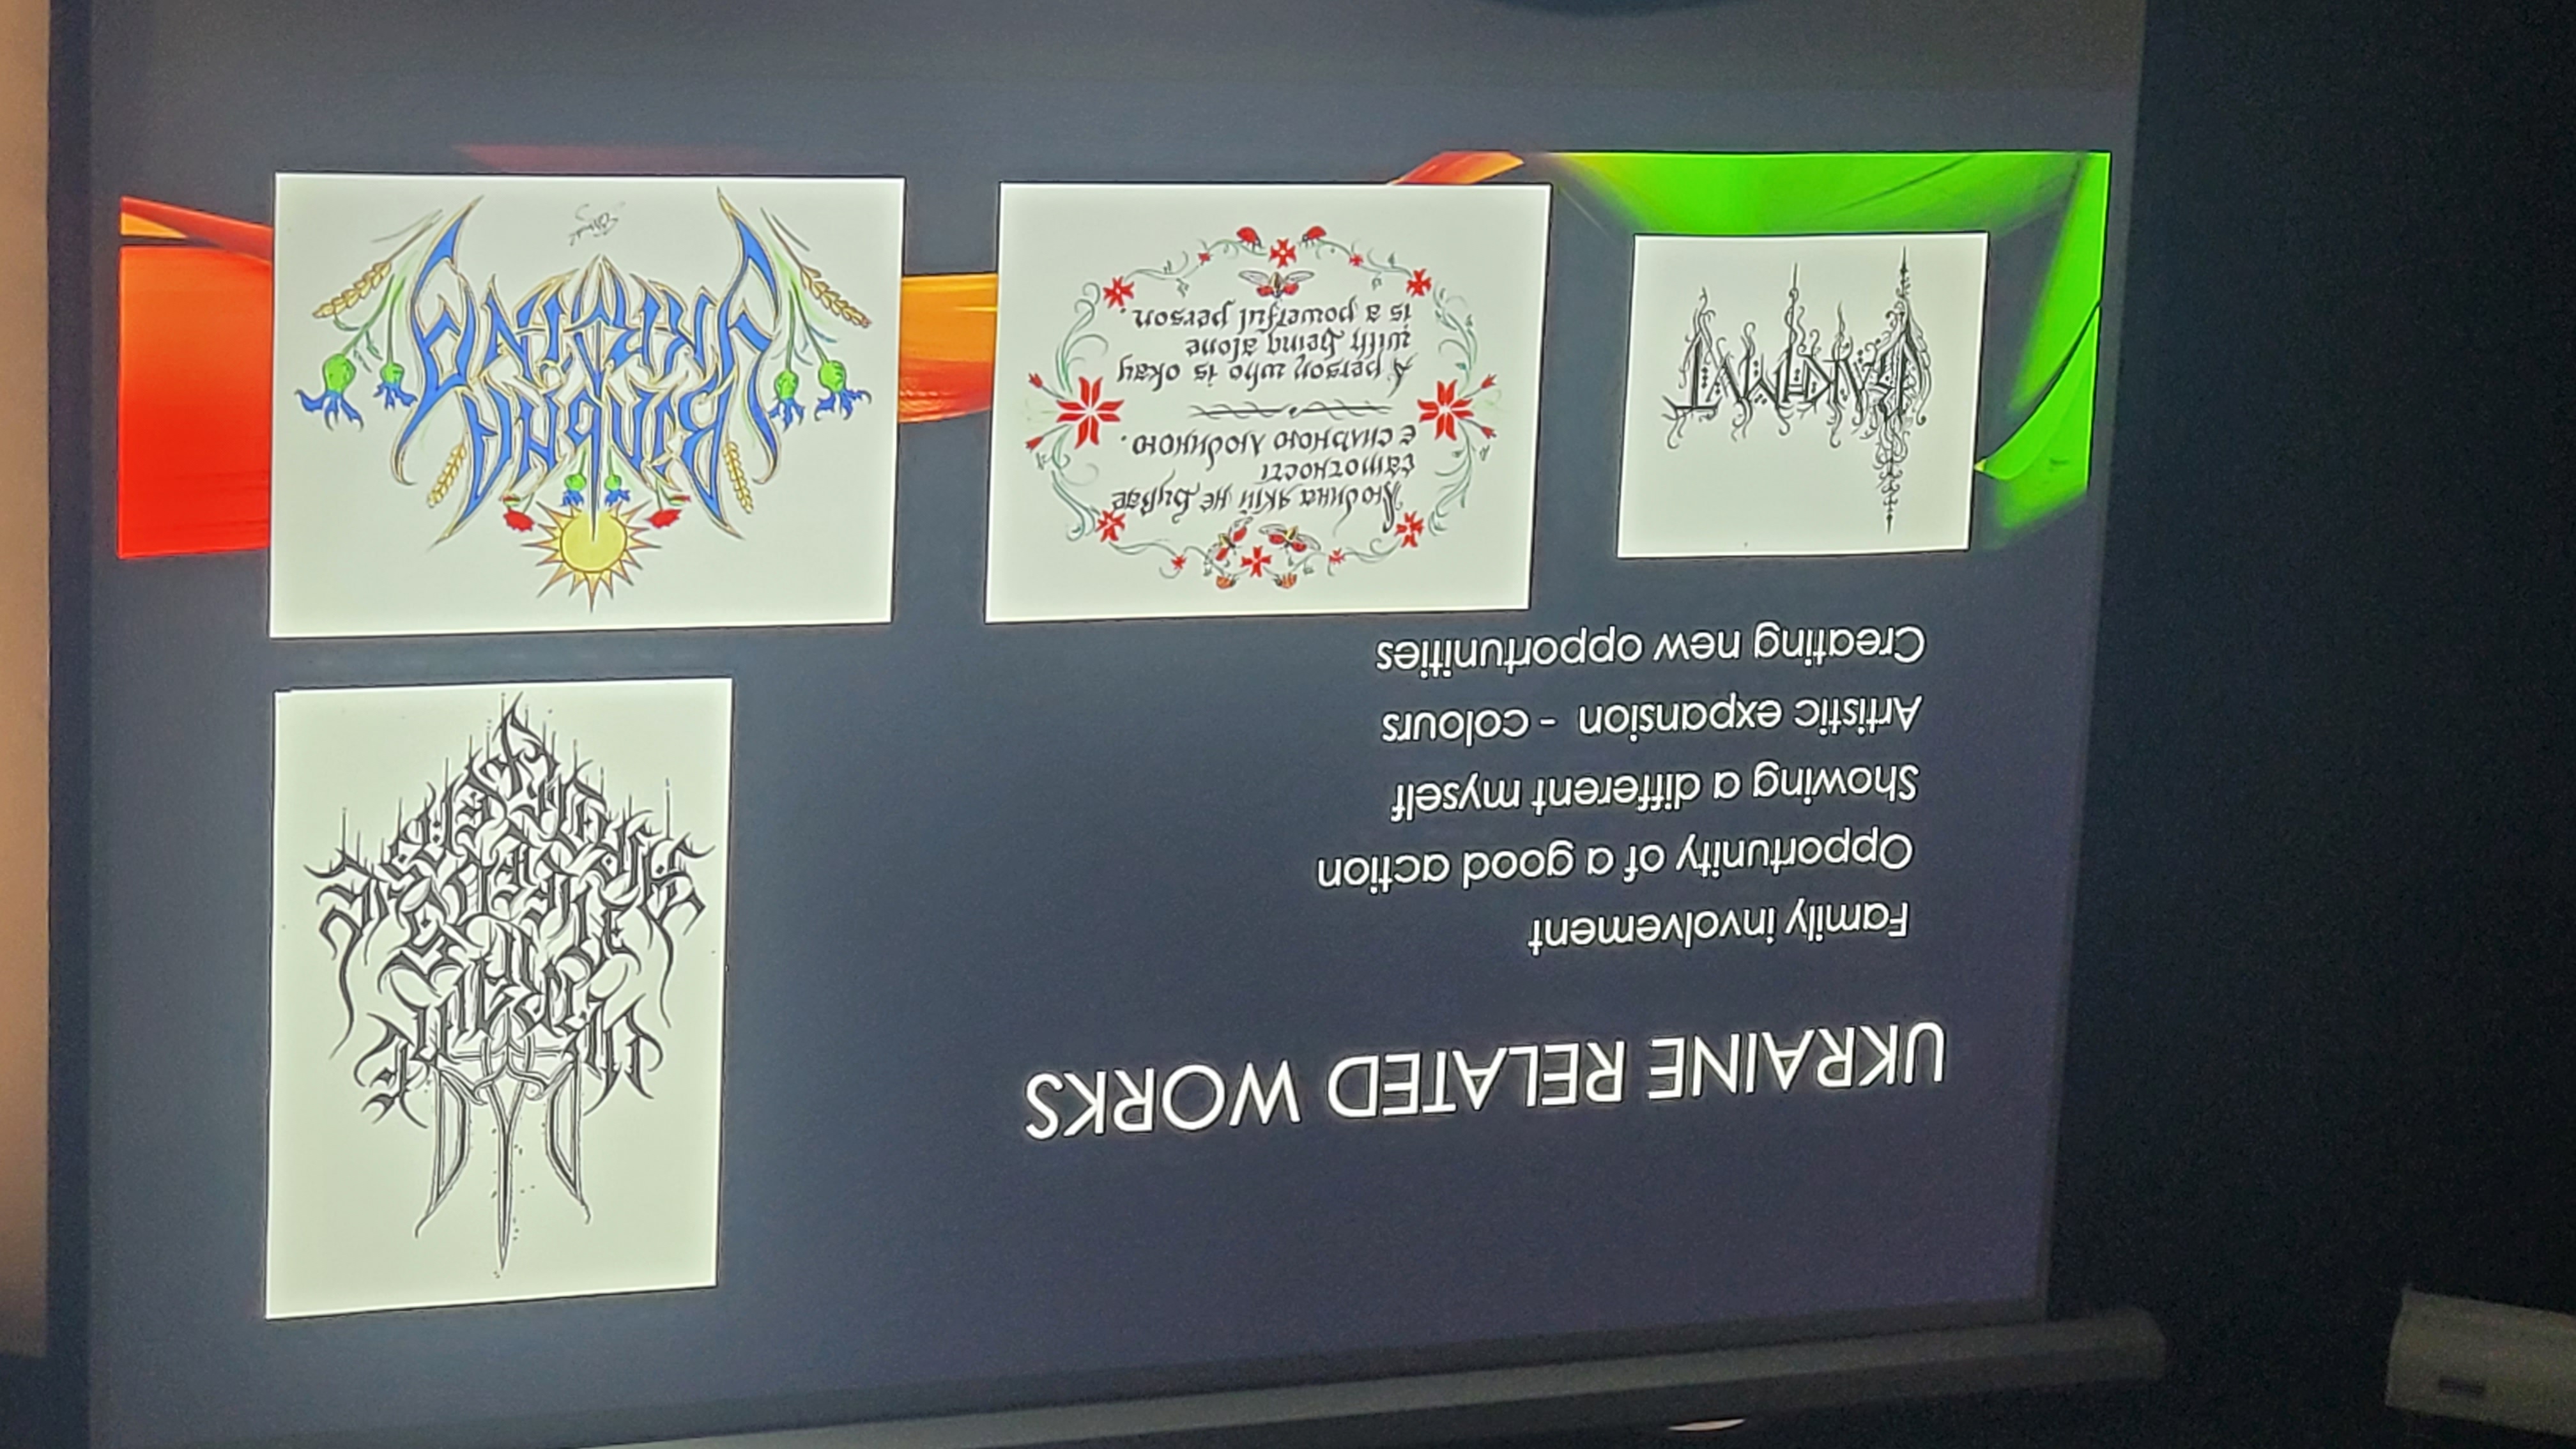 UKRAINE RELATED WORKS
Family involvement
Opportunity of a good action
Showing a different myself
Artistic expansion - colours
Creating new opportunities
UKRAINE
NEEDS
AIRDEFENSE
BAKHMVT
Людина якій не буває
самотності
є сильною людиною.
A person who is okay
with being alone
is a powerful person.
Вільна
Україна